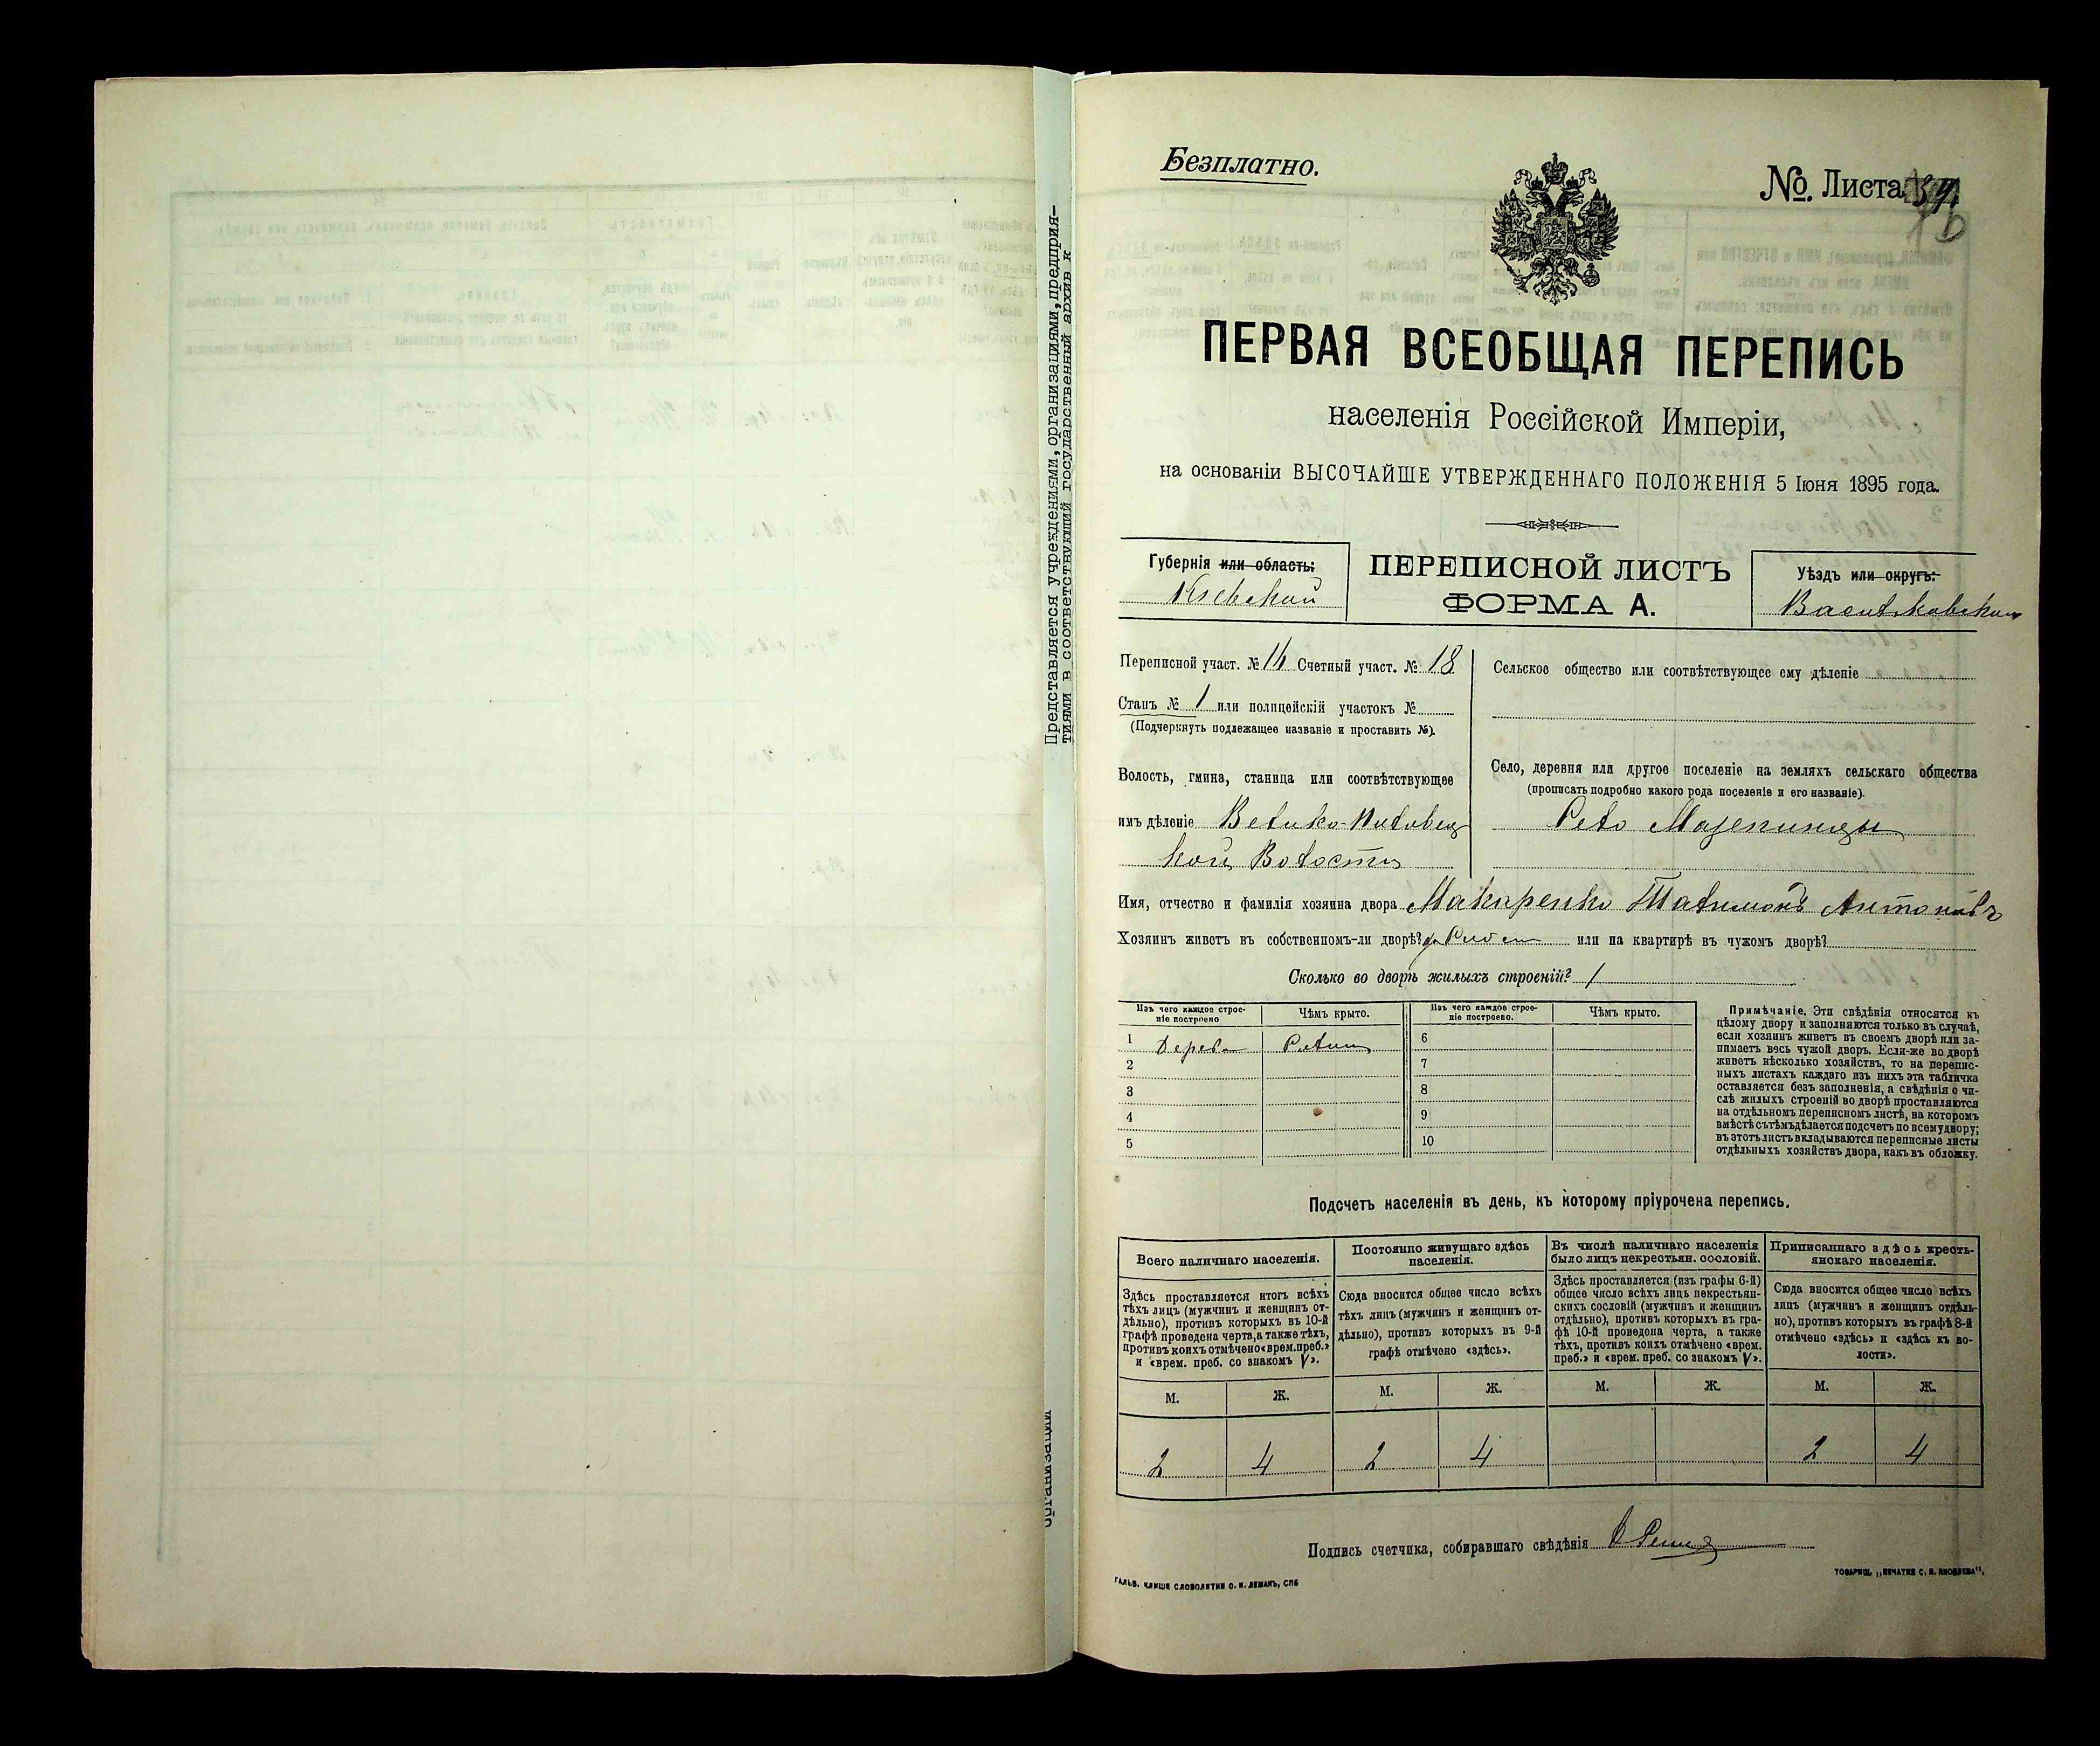 Представляется учреждениями, организациями, предприя-
тиями в соответствующий государственный архив к
организации
Безплатно.
№. Листа 34
ПЕРВАЯ ВСЕОБЩАЯ ПЕРЕПИСЬ
населенія Россійской Имперіи,
на основаніи ВЫСОЧАЙШЕ УТВЕРЖДЕННАГО ПОЛОЖЕНІЯ 5 Іюня 1895 года.
Губернія или область:
Кіевской
ПЕРЕПИСНОЙ ЛИСТЪ
ФОРМА А.
Уѣздъ или округъ:
Васильковском
Переписной участ. № 16 Счетный участ. № 18
Станъ № 1 или полицейскій участокъ №
(Подчеркнуть подлежащее названіе и проставить №).
Волость, гмина, станица или соотвѣтствующее
имъ дѣленіе Велико-Половец
кой Волости
Сельское общество или соотвѣтствующее ему дѣленіе
Село, деревня или другое поселеніе на земляхъ сельскаго общества
(прописать подробно какого рода поселеніе и его названіе).
Село Мазепинцы
Имя, отчество и фамилія хозяина двора Макаренко Антоновъ
Хозяинъ живетъ въ собственномъ-ли дворѣ? или на квартирѣ въ чужомъ дворѣ?
Сколько во дворѣ жилыхъ строеній? 1
Изъ чего каждое строе-
ніе построено
Чѣмъ крыто.
Изъ чего каждое строе-
ніе построено.
Чѣмъ крыто.
1 Дерева
6
2 7
3 8
4 9
5 10
Примѣчаніе. Эти свѣдѣнія относятся къ
цѣлому двору и заполняются только въ случаѣ,
если хозяинъ живетъ въ своемъ дворѣ или за-
нимаетъ весь чужой дворъ. Если-же во дворѣ
живетъ нѣсколько хозяйствъ, то на перепис-
ныхъ листахъ каждаго изъ нихъ эта табличка
оставляется безъ заполненія, а свѣдѣнія о чи-
слѣ жилыхъ строеній во дворѣ проставляются
на отдѣльномъ переписномъ листѣ, на которомъ
вмѣстѣ съ тѣмъ дѣлается подсчетъ по всему двору;
въ этотъ листъ вкладываются переписные листы
отдѣльныхъ хозяйствъ двора, какъ въ обложку.
Подсчетъ населенія въ день, къ которому пріурочена перепись.
Всего наличнаго населенія.
Постоянно живущаго здѣсь
населенія.
Въ числѣ наличнаго населенія
было лицъ некрестьян. сословій.
Приписаннаго здѣсь кресть-
янскаго населенія.
Здѣсь проставляется итогъ всѣхъ
тѣхъ лицъ (мужчинъ и женщинъ от-
дѣльно), противъ которыхъ въ 10-й
графѣ проведена черта, а также тѣхъ,
противъ коихъ отмѣчено «врем. преб.»
и «врем. преб. со знакомъ V».
Сюда вносится общее число всѣхъ
тѣхъ лицъ (мужчинъ и женщинъ от-
дѣльно), противъ которыхъ въ 9-й
графѣ отмѣчено «здѣсь».
Здѣсь проставляется (изъ графы 6-й)
общее число всѣхъ лицъ некрестьян-
скихъ сословій (мужчинъ и женщинъ
отдѣльно), противъ которыхъ въ гра-
фѣ 10-й проведена черта, а также
тѣхъ, противъ коихъ отмѣчено «врем.
преб.» и «врем. преб. со знакомъ V».
Сюда вносится общее число всѣхъ
лицъ (мужчинъ и женщинъ отдѣль-
но), противъ которыхъ въ графѣ 8-й
отмѣчено «здѣсь» и «здѣсь къ во-
лости».
М. Ж. М. Ж. М. Ж. М. Ж.
2 4 2 4 2 4
Подпись счетчика, собиравшаго свѣдѣнія
ГАЛЬВ. КЛИШЕ СЛОВОЛИТНИ О. И. ЛЕМАНЪ, СПБ
ТОВАРИЩ. „ПЕЧАТНЯ С. П. ЯКОВЛЕВА“.